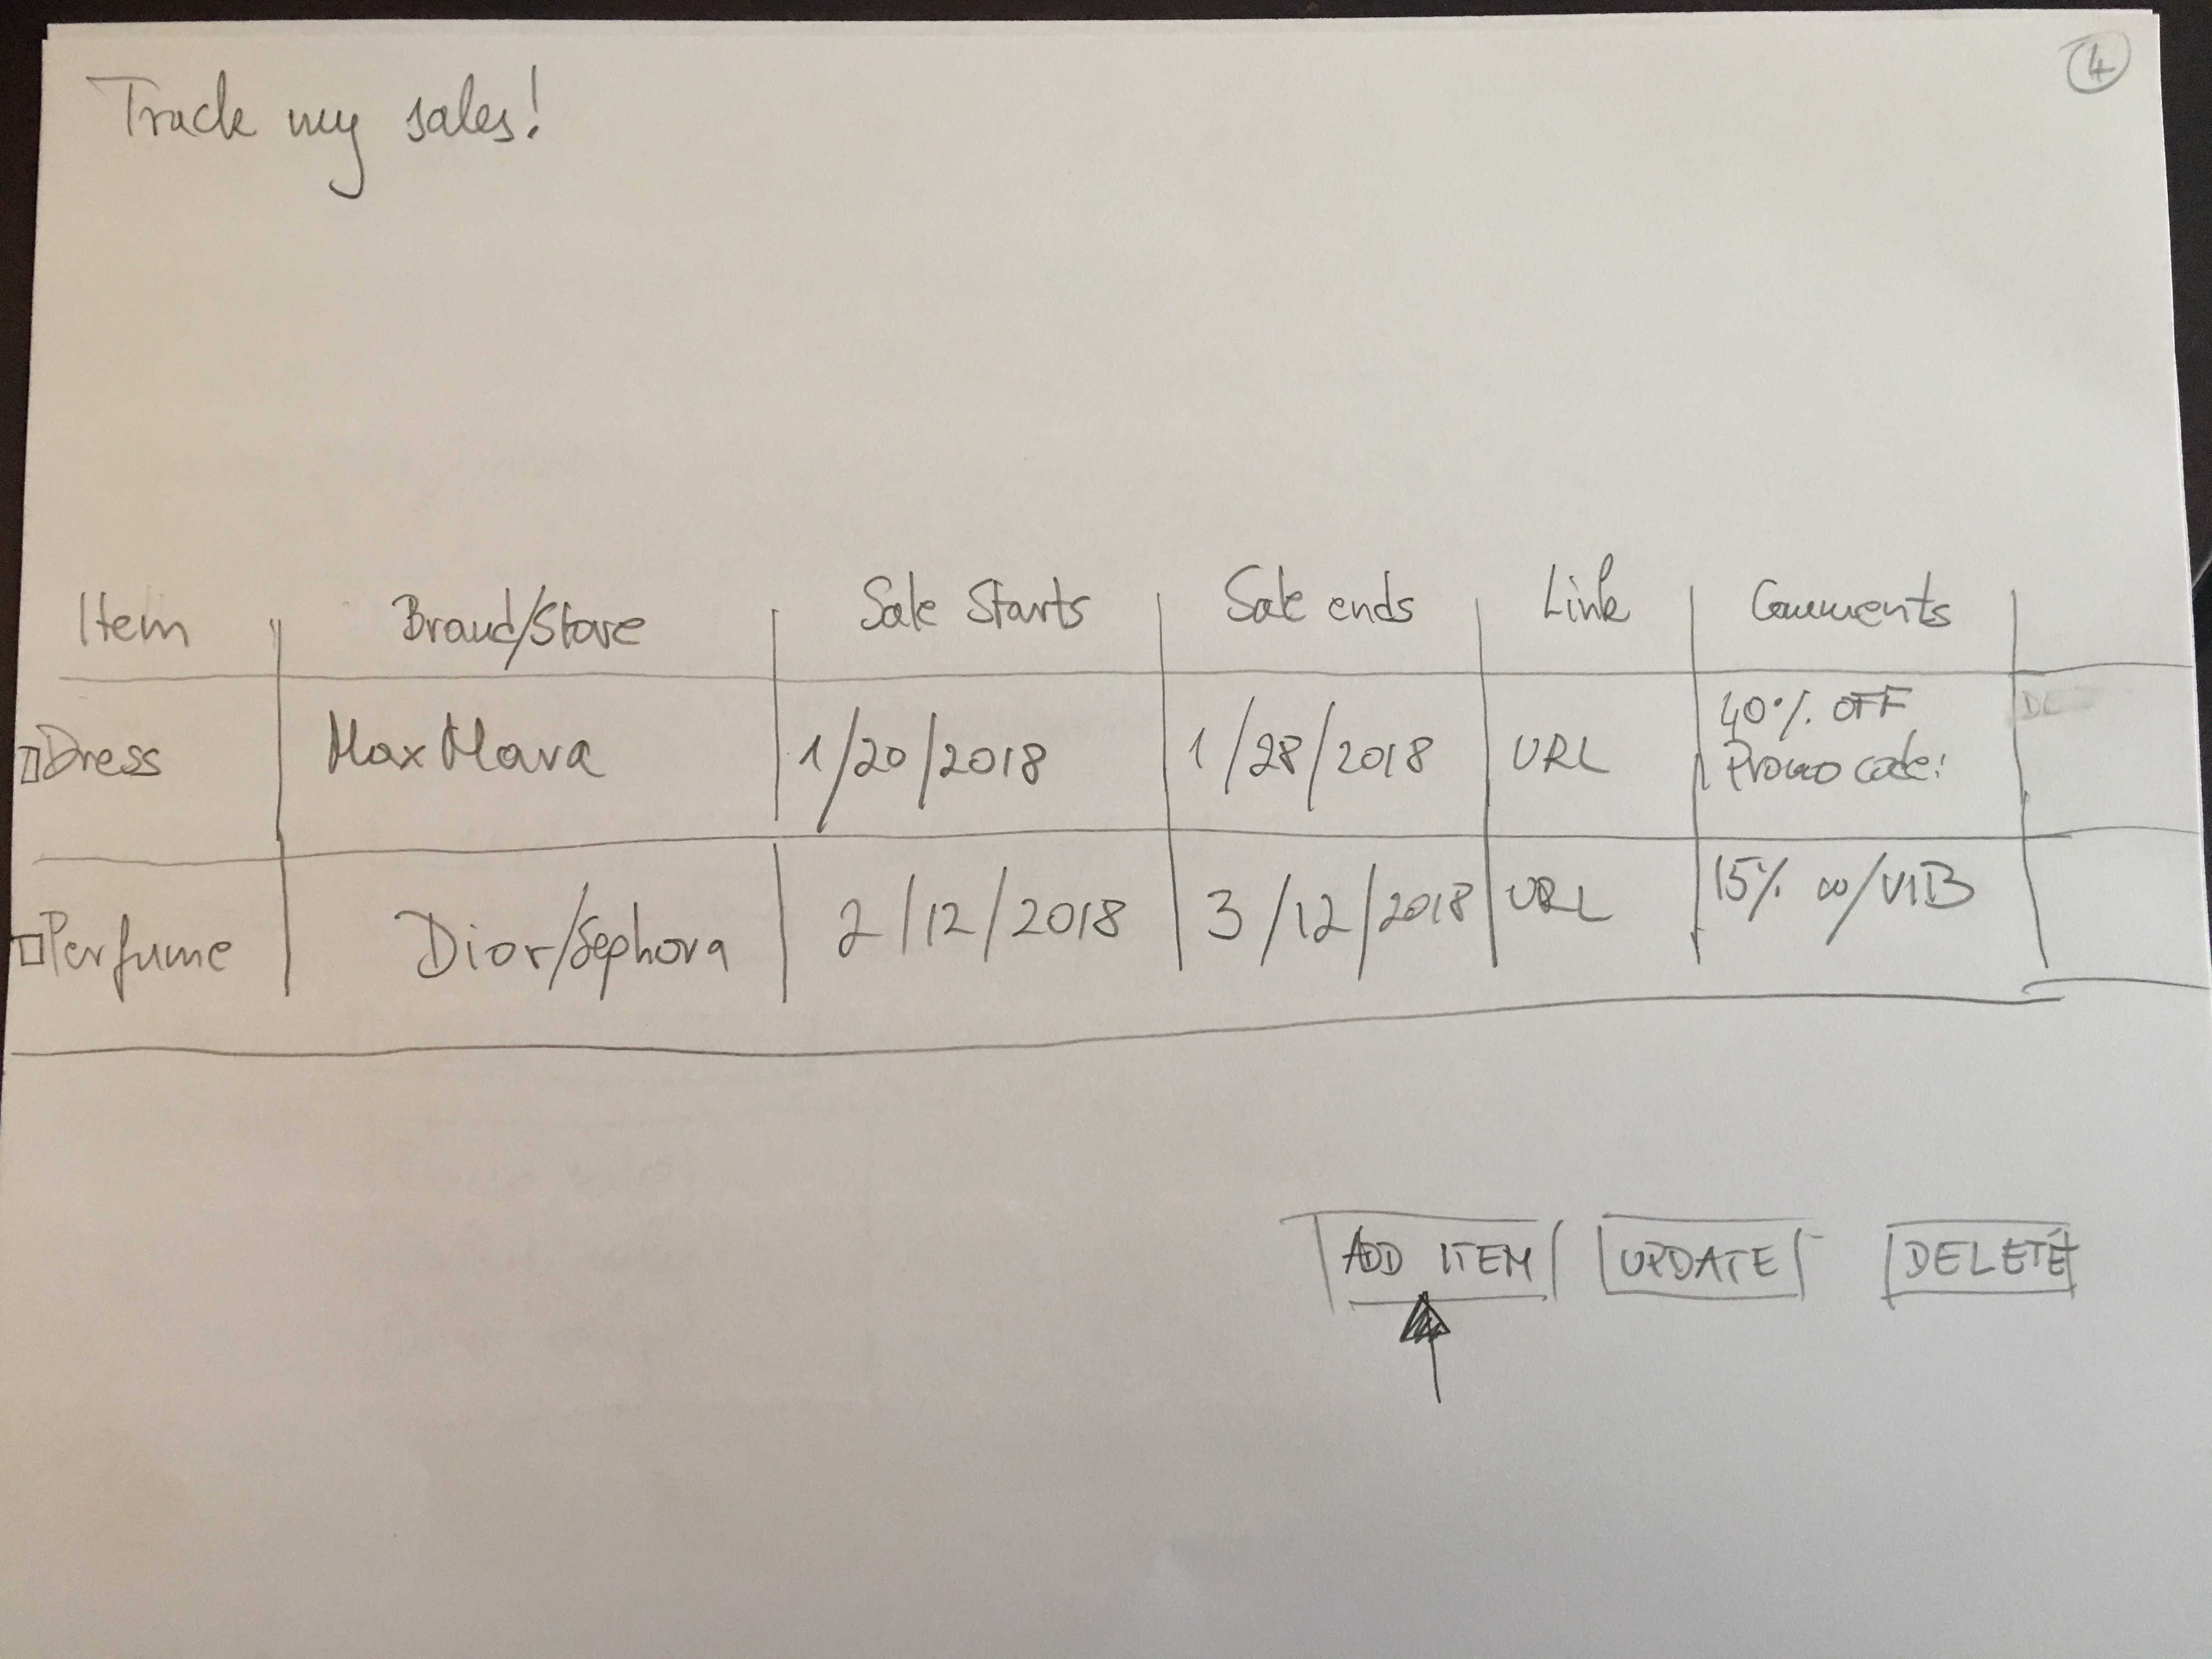 4
Track my sales!
Item Brand/Store Sale Starts Sale ends Link Comments
Dress Max Mara 1/20/2018 1/28/2018 URL 40% OFF
Promo code:
Perfume Dior/Sephora 2/12/2018 3/12/2018 URL 15% w/VIB
ADD ITEM UPDATE DELETE